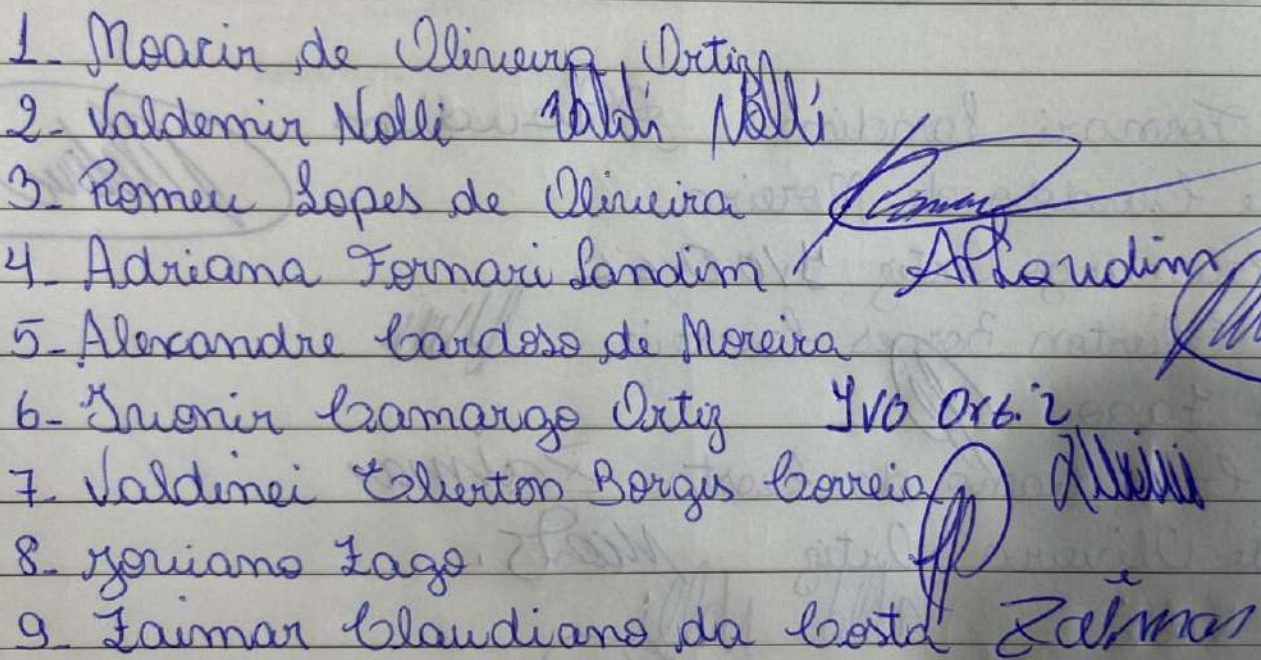 1- Moacir de Oliveira Ortiz
2- Valdemir Nolli Valdi Nolli
3- Romeu Lopes de Oliveira
4- Adriana Fornari Landim AFLandim
5- Alexandre Cardoso de Moreira
6- Ivonir Camargo Ortiz IVO Ortiz
7- Valdinei Elierton Borges Correia
8- Joviano Zago
9- Zaimar Claudiano da Costa Zaimar